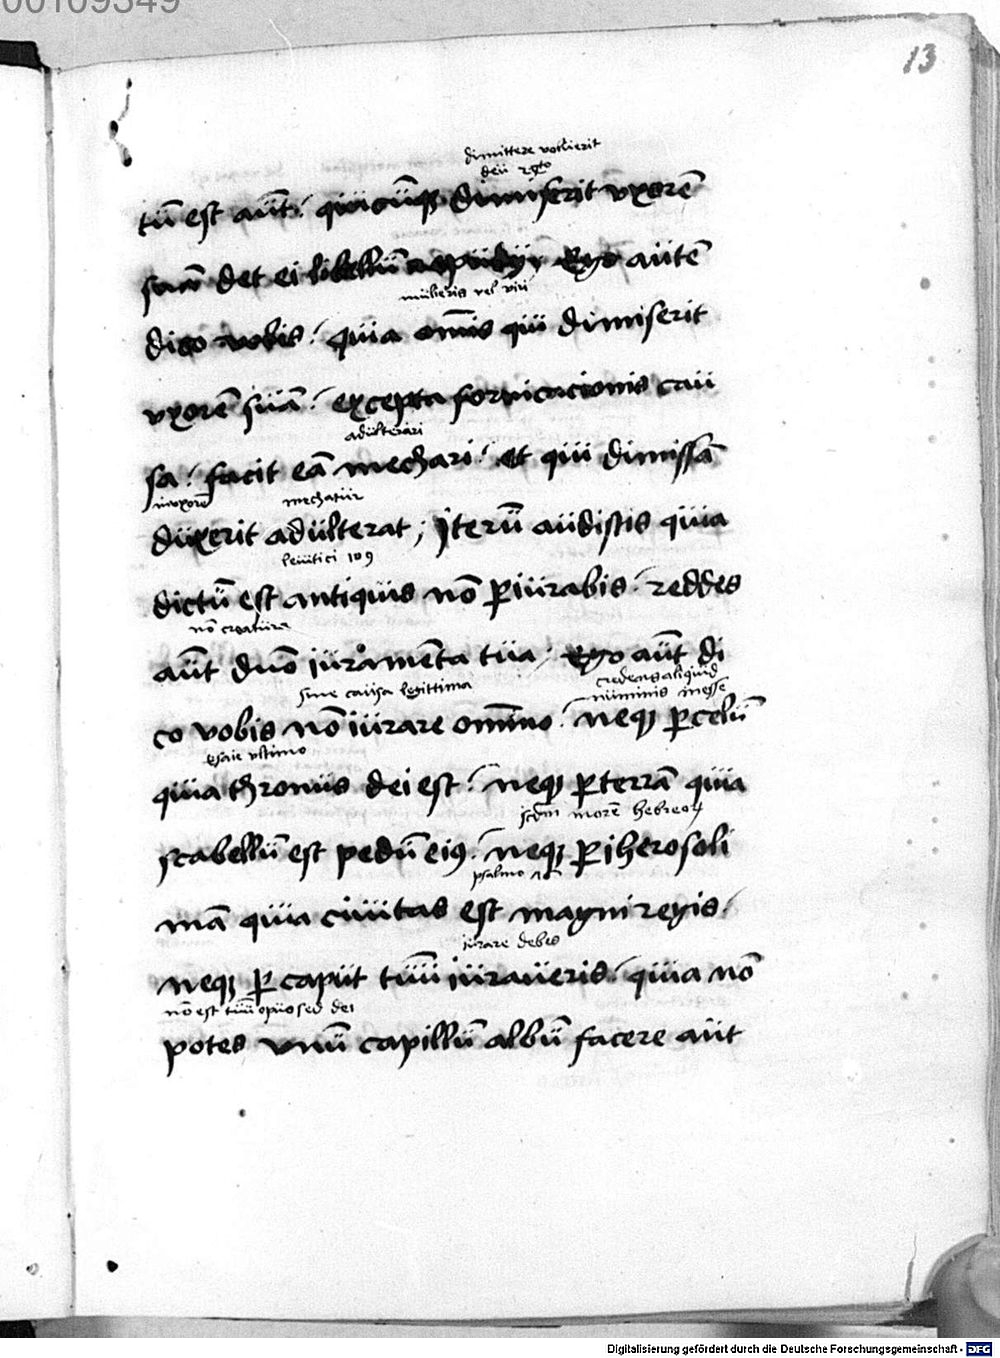 00109349
13
dimittere voluerit
deu 24to
tū est aūt / quicūqꝫ dimiserit vxorē
suā det ei libellū repudij / Ego autē
mulieris vel viri
dico vobis / Quia om̄is qui dimiserit
vxorē suā / excepta fornicacionis cau
adulterari
sa / facit eā mechari / et qui dimissā
in vxorē mechatur
duxerit adulterat / Iterū audistis quia
leuitici 19
dictū est antiquis nō ꝑiurabis / reddes
nō creatura
aūt dn̄o iuramēta tua / Ego aūt di
credens aliquid
sine causa legittima numinis inesse
co vobis nō iurare om̄ino / neqꝫ ꝑ celū
esaie vltimo
quia thronus dei est / neqꝫ ꝑ terrā quia
scdm morē hebreoꝝ
scabellū est pedū eiꝰ / neqꝫ ꝑ iherosoli
psalmo
mā quia ciuitas est magni regis /
iurare debes
neqꝫ ꝑ caput tuū iuraueris / quia nō
nō est tuū opus sed dei
potes vnū capillū albū facere aut
Digitalisierung gefördert durch die Deutsche Forschungsgemeinschaft - DFG